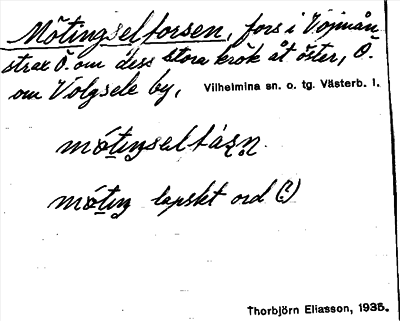 Mötingselforsen, fors i Vojmån
strax Ö. om dess stora krök åt öster, O.
om Volgsele by, Vilhelmina sn. o. tg. Västerb. l.
mö́tiŋselfásn.
mö́tiŋ lapskt ord (?)
Thorbjörn Eliasson, 1935.